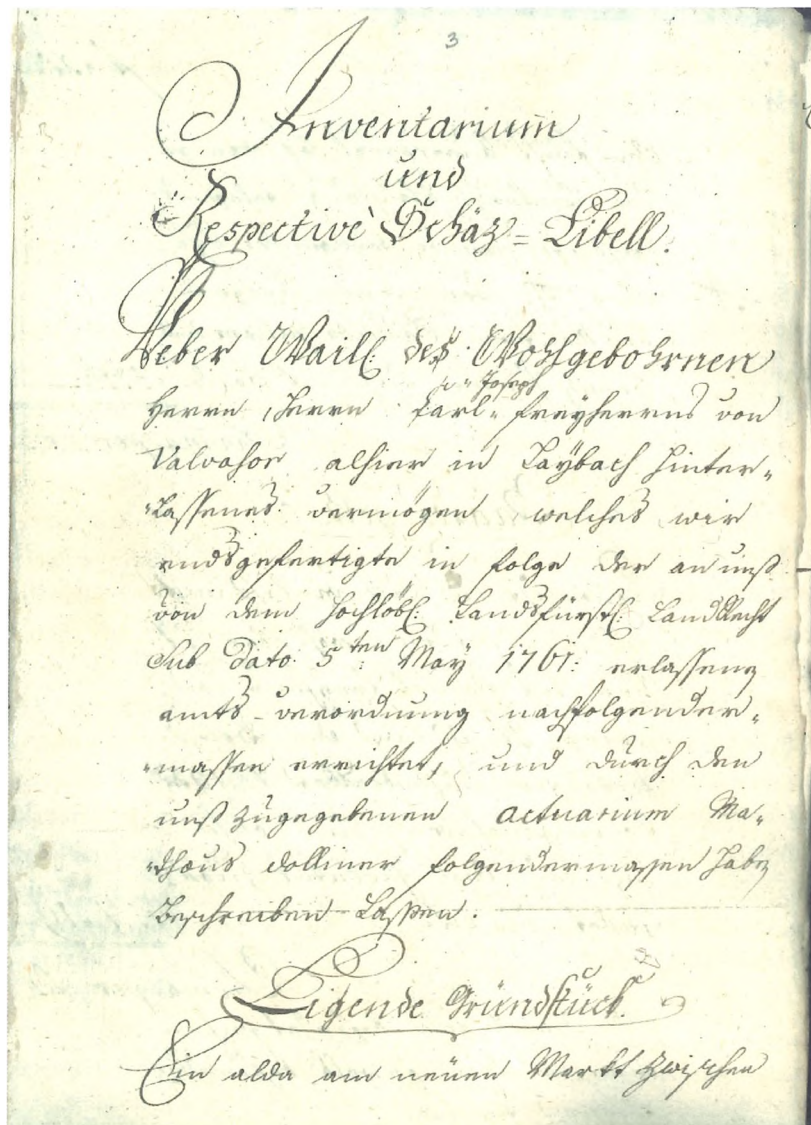 3
Inventarium
und
Respective Schäz = Libell.
Ueber Weil: des Wohlgebohrnen
Herrn, Herrn Carl = Joseph Freyherrns von
Valvasor alhier in Laybach hinter=
=Lassenes vermögen welches wir
endsgefertigte in folge der an unß
von dem Hochlöbl: Landsfürstl: LandsRecht
Sub Dato 5ten: May 1761: erlassenen
amts=verordnung nachfolgender=
=massen errichtet, und durch den
unß zugegebenen actuarium Ma=
=thæus Dolliner folgendermassen haben
Beschreiben Lassen.
Ligende Gründstück.
Ein alda am neüen Markt zwischen